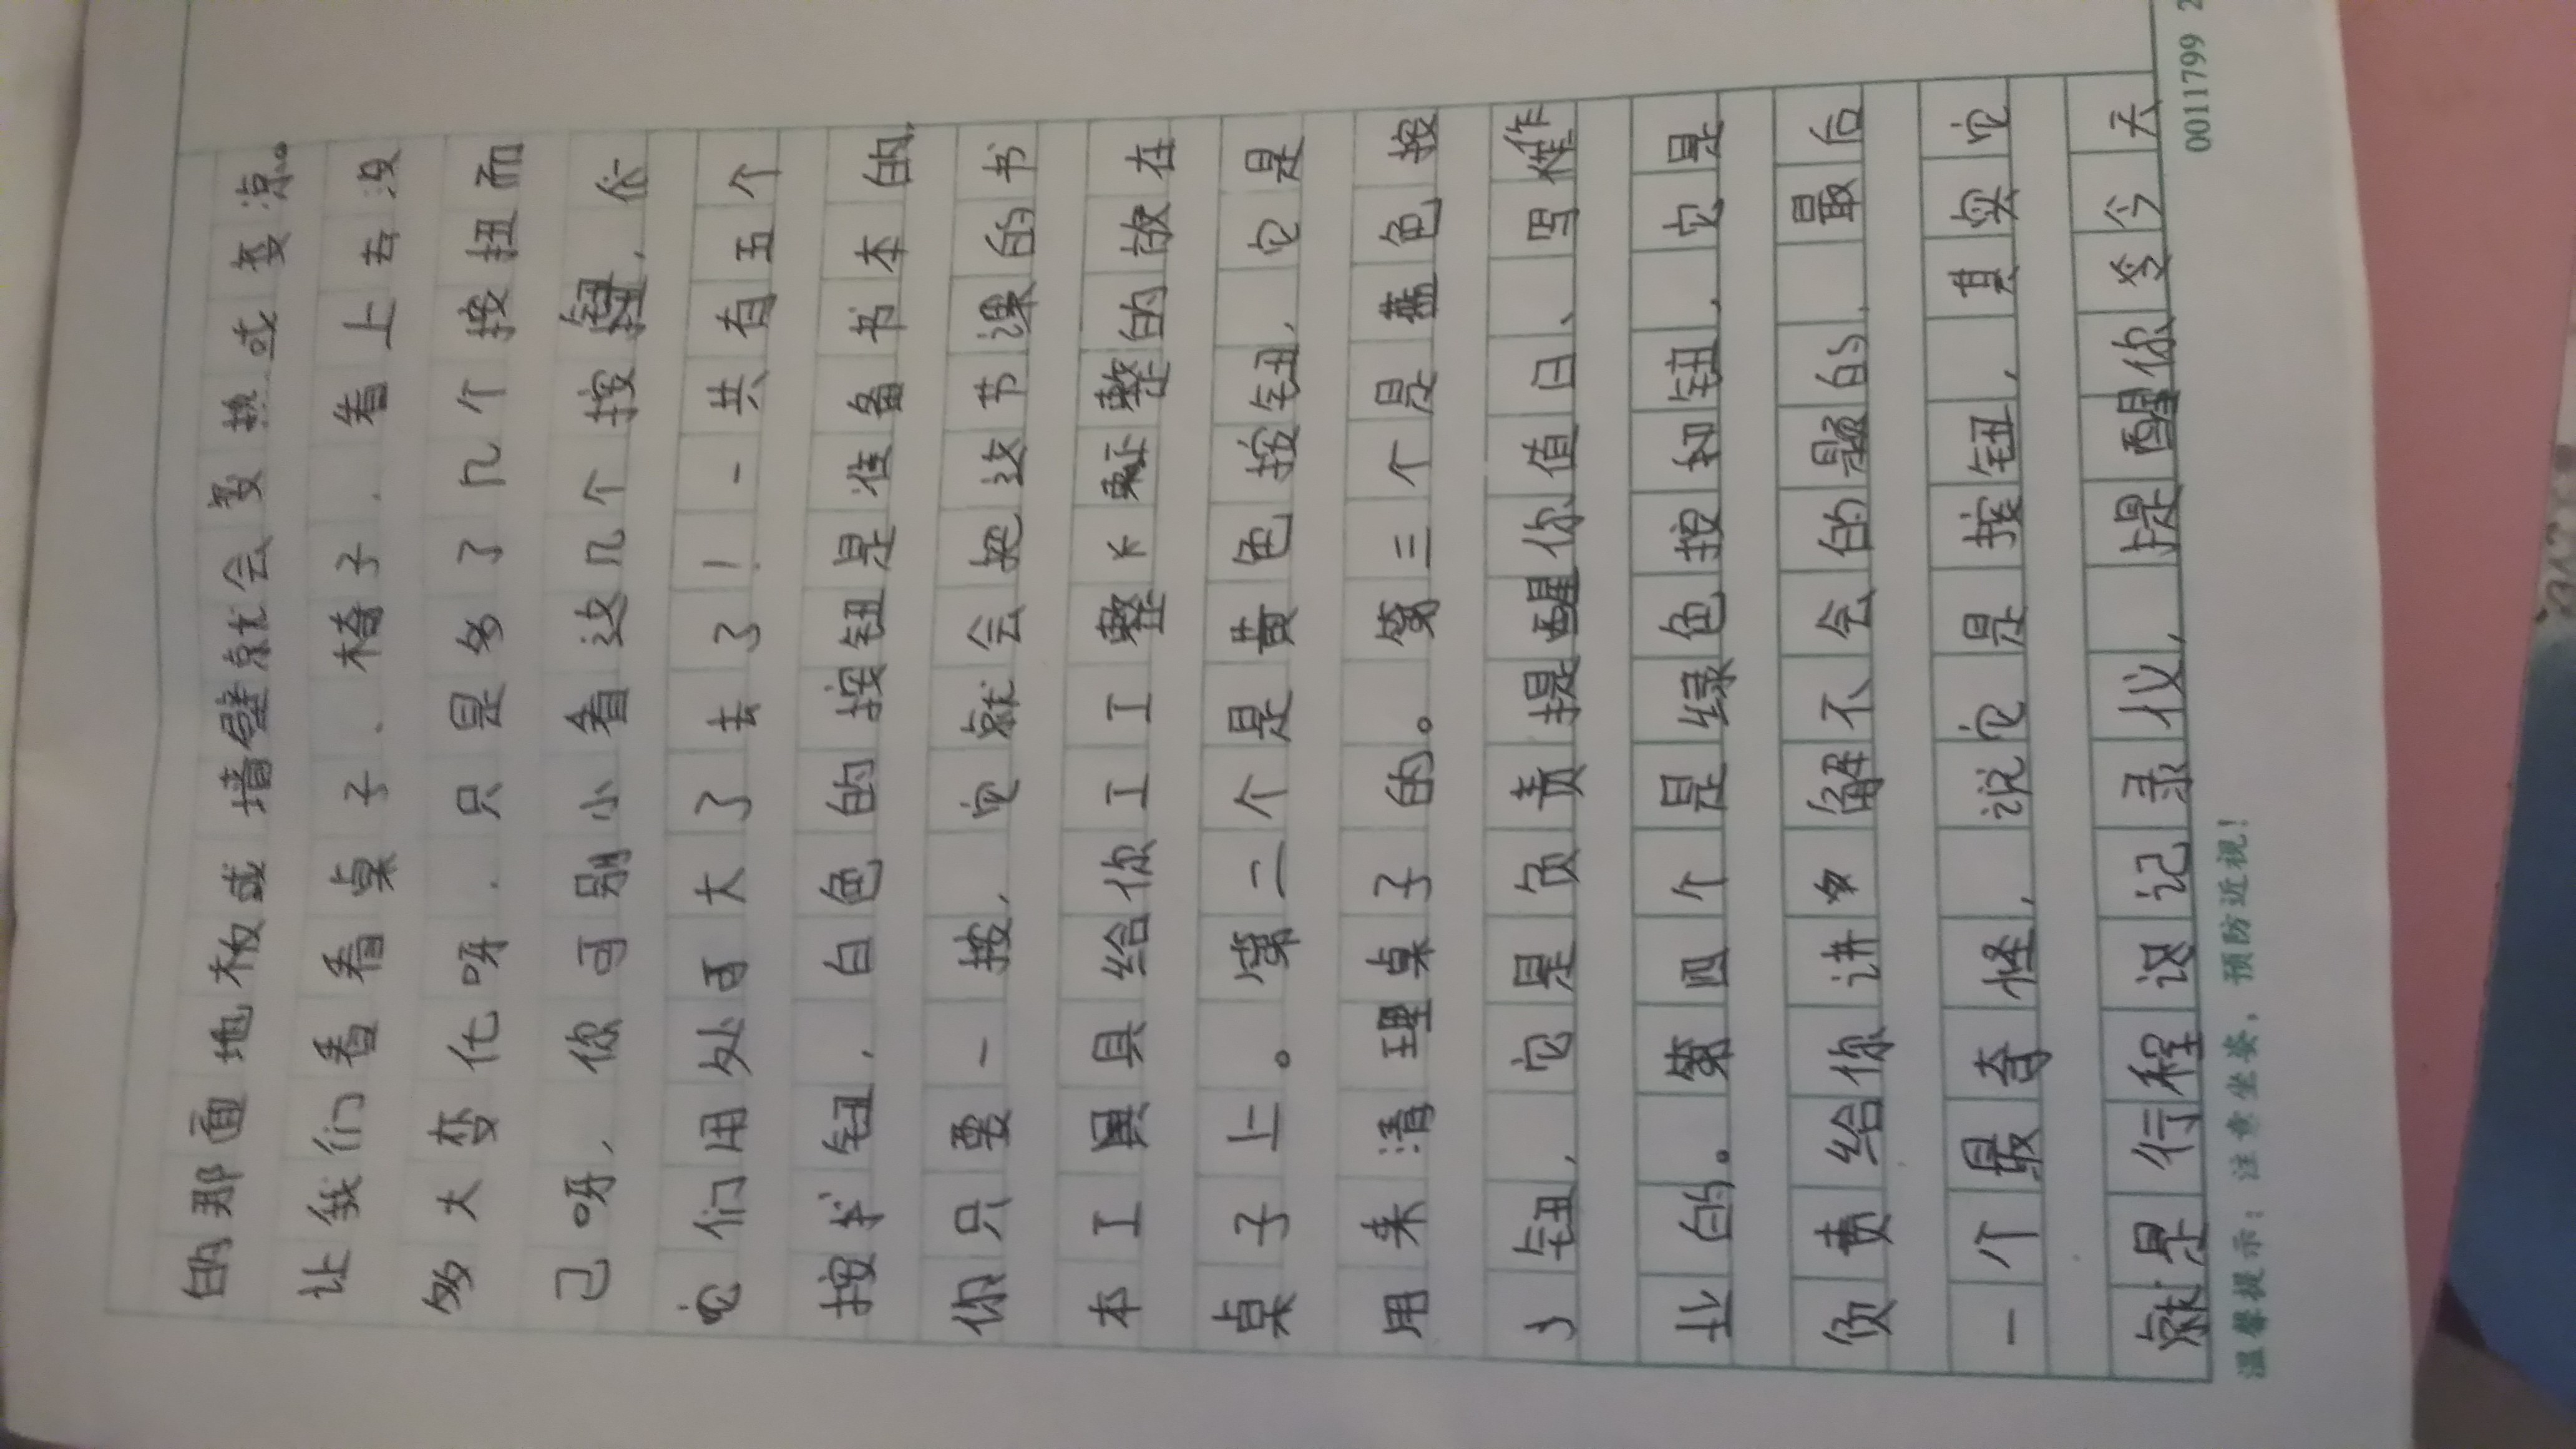 的那面地板或墙壁就会变热或变凉。
让我们看看桌子、椅子，看上去没
多大变化呀，只是多了几个按扭而
己呀，你可别小看这几个按钮，你
它们用处可大了去了！一共有五个
按钮，白色的按钮是准备书本的，
你只要一按，它就会把这节课的书
本工具具给你工工整整的放在
桌子上。第二个是黄色按钮，它是
用来清理桌子的。第三个是蓝色按
钮，它是负责提醒你值日、写作
业的。第四个是绿色按扣钮，它是
负责给你讲解不会的题的，最后
一个最奇怪，说它是按钮，其实它
就是行程记录仪，提醒你今天
温馨提示：注意坐姿，预防近视！
0011799 2